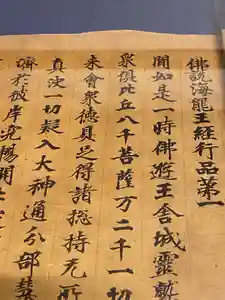 佛說海龍王經行品第一
聞如是一時佛遊王舍城靈鷲
衆俱比丘八千菩薩万二千一切
來會衆德具足得諸総持无所
真汝一切疑入大神通分部慧
於彼岸
開